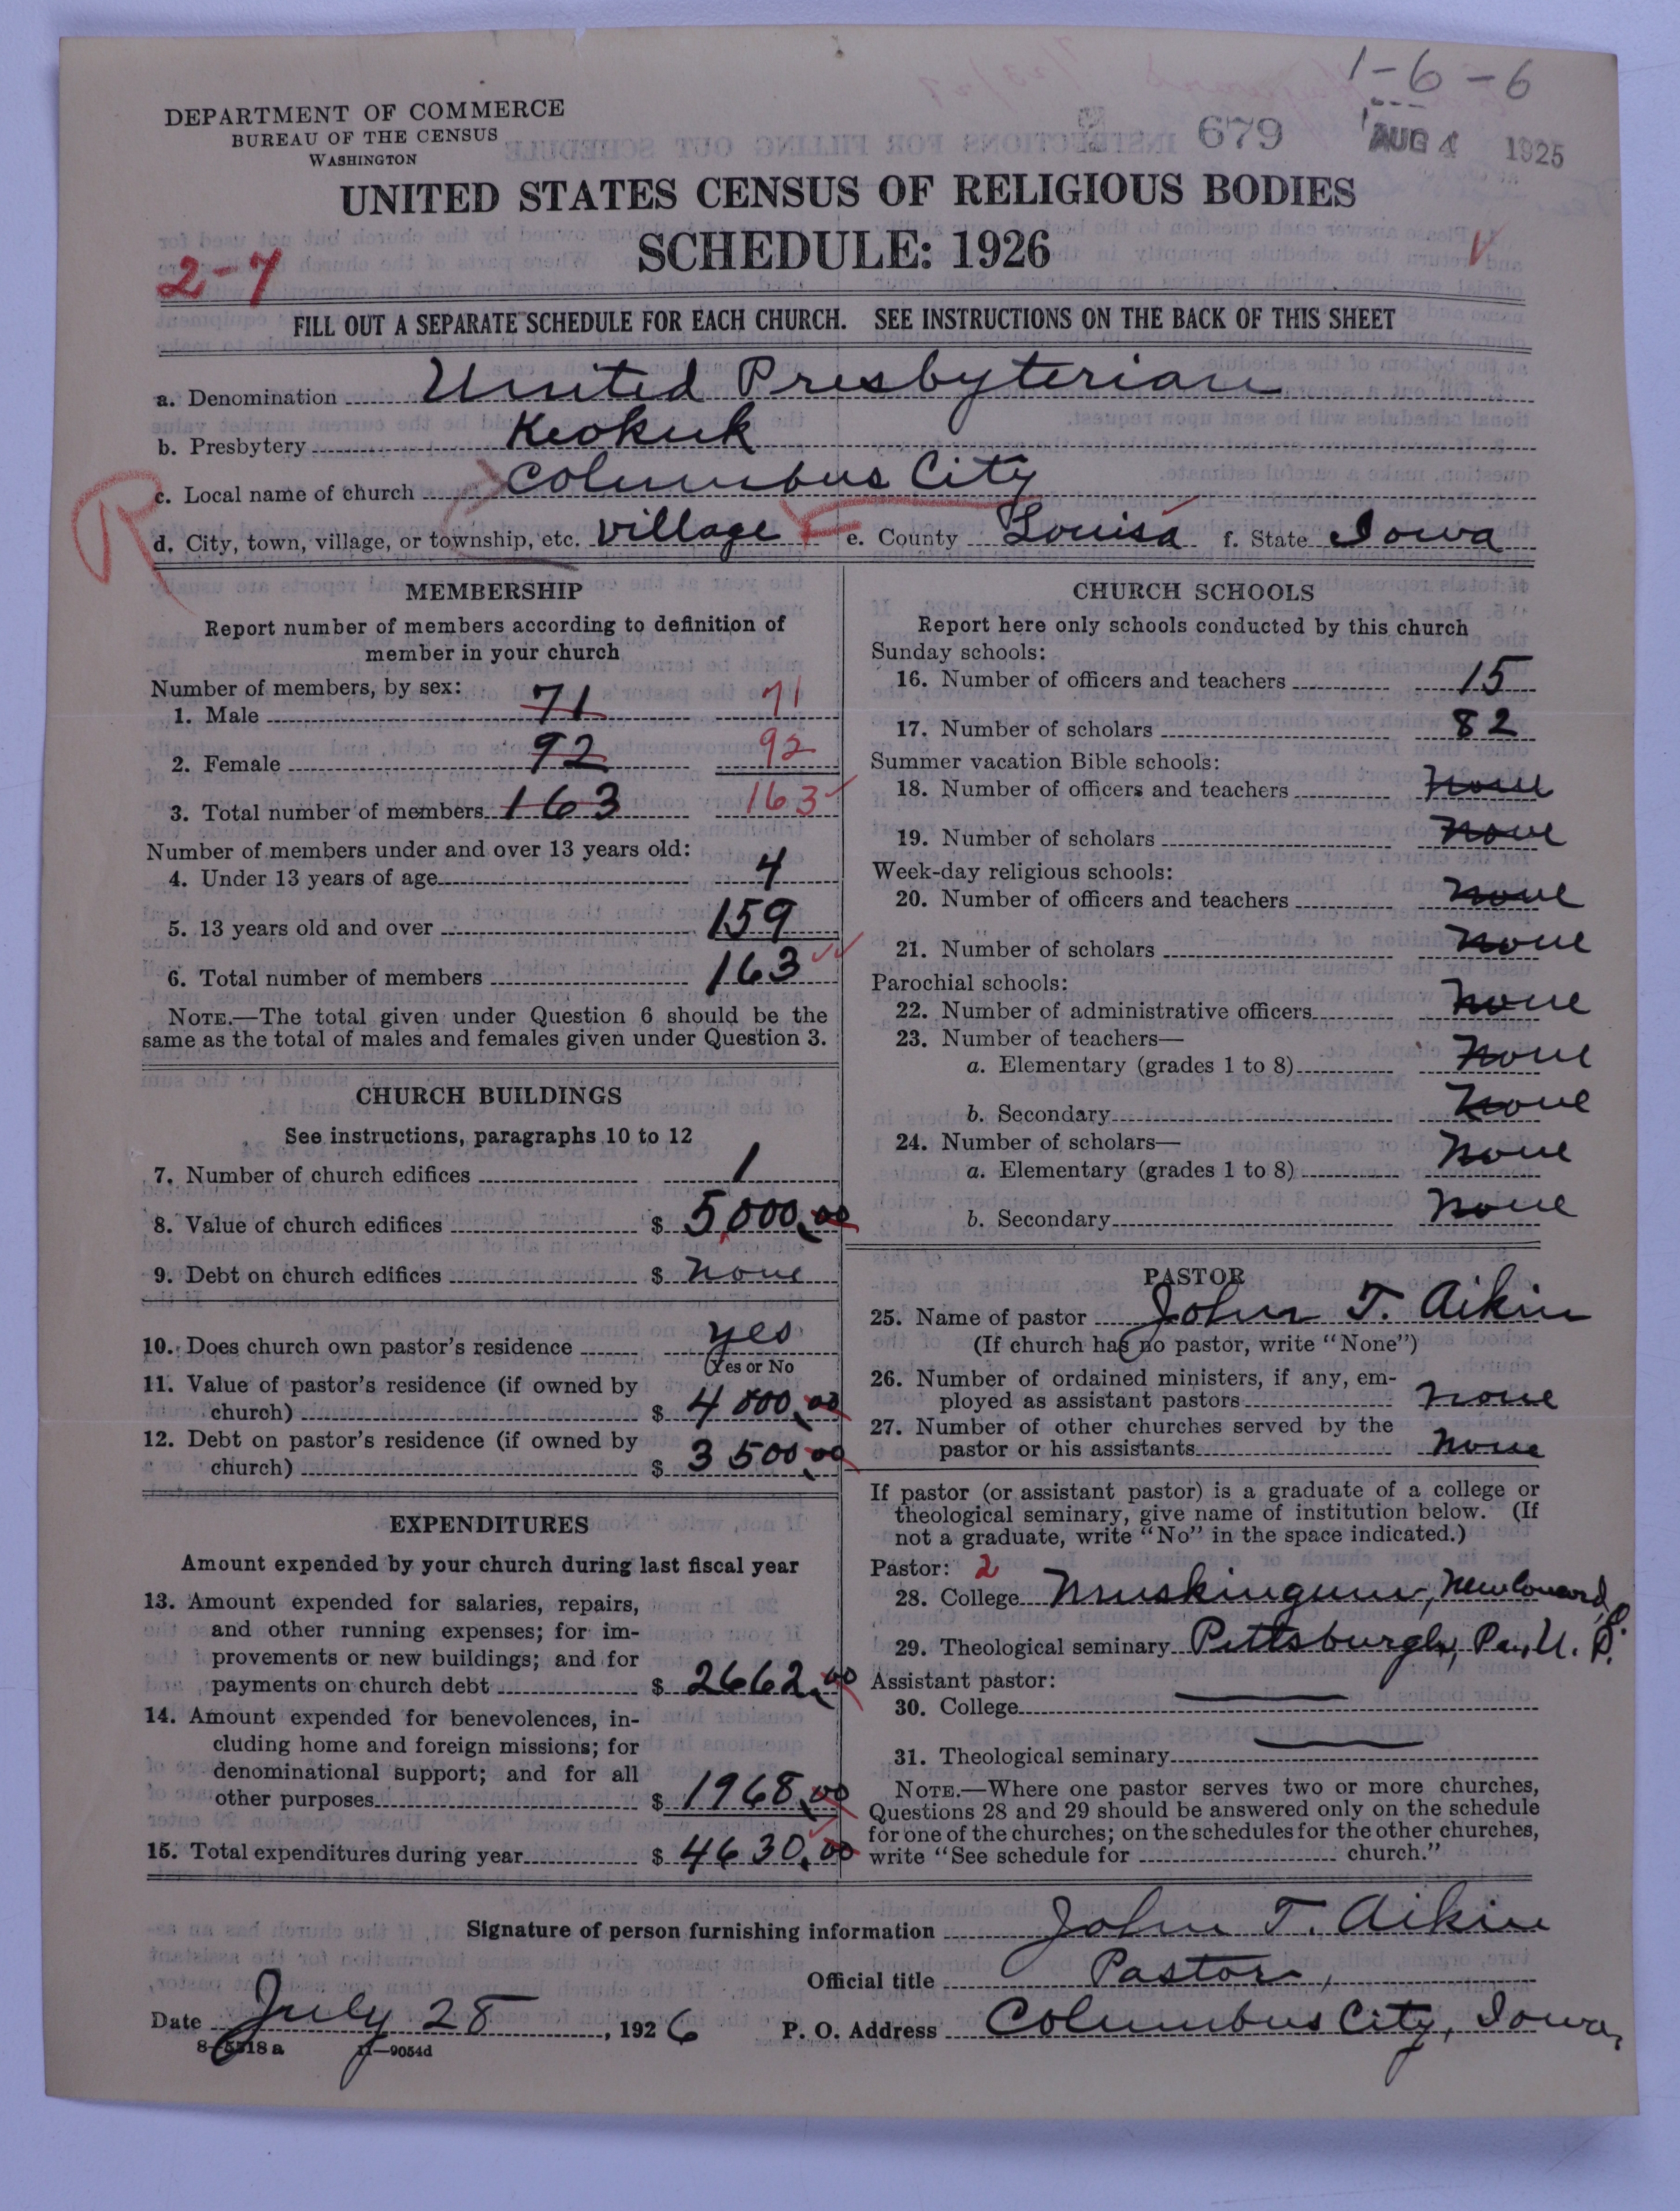 1-6-6
DEPARTMENT OF COMMERCE
BUREAU OF THE CENSUS
WASHINGTON
679
AUG 4 1925
UNITED STATES CENSUS OF RELIGIOUS BODIES
SCHEDULE: 1926
2-7
FILL OUT A SEPARATE SCHEDULE FOR EACH CHURCH. SEE INSTRUCTIONS ON THE BACK OF THIS SHEET
a. Denomination United Presbyterian
b. Presbytery Keokuk
c. Local name of church Columbus City
R
d. City, town, village, or township, etc. village e. County Louisa f. State Iowa
MEMBERSHIP
Report number of members according to definition of
member in your church
Number of members, by sex:
1. Male 71 71
2. Female 92 92
3. Total number of members 163 163
Number of members under and over 13 years old:
4. Under 13 years of age 4
5. 13 years old and over 159
6. Total number of members 163
NOTE.—The total given under Question 6 should be the
same as the total of males and females given under Question 3.
CHURCH BUILDINGS
See instructions, paragraphs 10 to 12
7. Number of church edifices 1
8. Value of church edifices $ 5,000.00
9. Debt on church edifices $ none
10. Does church own pastor's residence yes
(Yes or No
11. Value of pastor's residence (if owned by
church) $ 4000.00
12. Debt on pastor's residence (if owned by
church) $ 3500.00
EXPENDITURES
Amount expended by your church during last fiscal year
13. Amount expended for salaries, repairs,
and other running expenses; for im-
provements or new buildings; and for
payments on church debt $ 2662.00
14. Amount expended for benevolences, in-
cluding home and foreign missions; for
denominational support; and for all
other purposes $ 1968.00
15. Total expenditures during year $ 4630.00
CHURCH SCHOOLS
Report here only schools conducted by this church
Sunday schools:
16. Number of officers and teachers 15
17. Number of scholars 82
Summer vacation Bible schools:
18. Number of officers and teachers none
19. Number of scholars none
Week-day religious schools:
20. Number of officers and teachers none
21. Number of scholars none
Parochial schools:
22. Number of administrative officers none
23. Number of teachers—
a. Elementary (grades 1 to 8) none
b. Secondary none
24. Number of scholars—
a. Elementary (grades 1 to 8) none
b. Secondary none
PASTOR
25. Name of pastor John T. Aikin
(If church has no pastor, write "None")
26. Number of ordained ministers, if any, em-
ployed as assistant pastors none
27. Number of other churches served by the
pastor or his assistants none
If pastor (or assistant pastor) is a graduate of a college or
theological seminary, give name of institution below. (If
not a graduate, write "No" in the space indicated.)
Pastor: 2
28. College Muskingum, New Concord, O.
29. Theological seminary Pittsburgh, Pa., U. P.
Assistant pastor:
30. College
31. Theological seminary
NOTE.—Where one pastor serves two or more churches,
Questions 28 and 29 should be answered only on the schedule
for one of the churches; on the schedules for the other churches,
write "See schedule for church."
Signature of person furnishing information John T. Aikin
Official title Pastor,
Date July 28, 1926 P. O. Address Columbus City, Iowa,
8-5518a 11—9054d